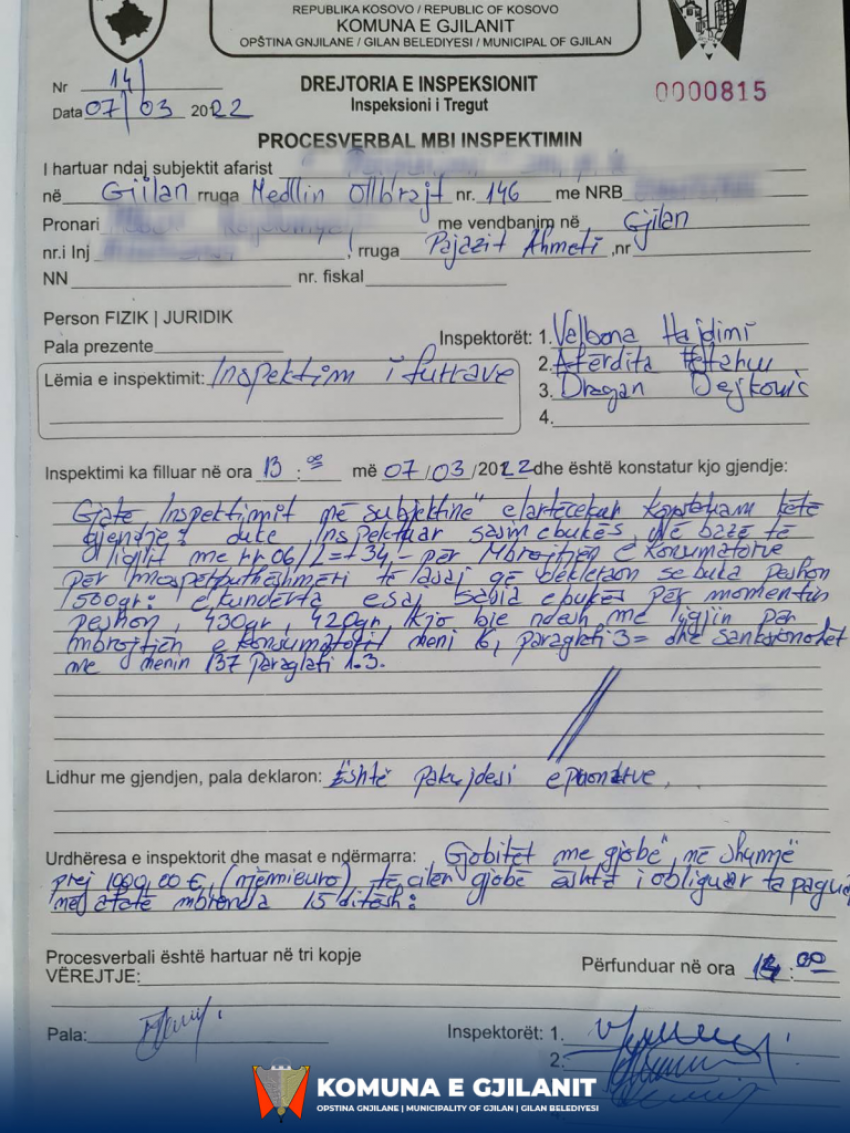 REPUBLIKA KOSOVO / REPUBLIC OF KOSOVO
KOMUNA E GJILANIT
OPŠTINA GNJILANE / GILAN BELEDIYESI / MUNICIPAL OF GJILAN
Nr 14/
DREJTORIA E INSPEKSIONIT
0000815
Data 07/03 2022
Inspeksioni i Tregut
PROCESVERBAL MBI INSPEKTIMIN
I hartuar ndaj subjektit afarist
në Gjilan rruga Medllin Ollbrajt nr. 146 me NRB
Pronari me vendbanim në Gjilan
nr.i Inj rruga Pajazit Ahmeti, nr
NN nr. fiskal
Person FIZIK | JURIDIK
Pala prezente
Inspektorët: 1. Valbona Hajdini
2. Afërdita
3. Dragan Dejkovic
4.
Lëmia e inspektimit: Inspektim i furrave
Inspektimi ka filluar në ora 13:00 më 07/03/2022 dhe është konstatur kjo gjendje:
Gjatë Inspektimit në subjektin e lartëcekur konstatuam këtë
gjendje: duke Inspektuar sasin e bukës, në bazë të
ligjit me nr 06/L=+34,- për Mbrojtjen e konsumatorve
për mospërputhëshmëri të asaj që deklaron se buka peshon
500gr: e kundërta e saj sasia e bukës për momentin
peshon, 430gr, 420gr, kjo bie ndesh me ligjin për
mbrojtjen e konsumatorit neni 16, paragrafi 3= dhe sanksionohet
me nenin 137 paragrafi 1.3.
Lidhur me gjendjen, pala deklaron: Është pakujdesi e puntorve,
Urdhëresa e inspektorit dhe masat e ndërmarra: Gjobitët me gjobë në shumë
prej 1000,00 €, (njëmieuro) të cilën gjobë është i obliguar ta paguaj
në afatë mbrenda 15 ditësh:
Procesverbali është hartuar në tri kopje
VËREJTJE:
Përfunduar në ora 14:00
Pala:
Inspektorët: 1.
2.
KOMUNA E GJILANIT
OPSTINA GNJILANE | MUNICIPALITY OF GJILAN | GILAN BELEDIYESI